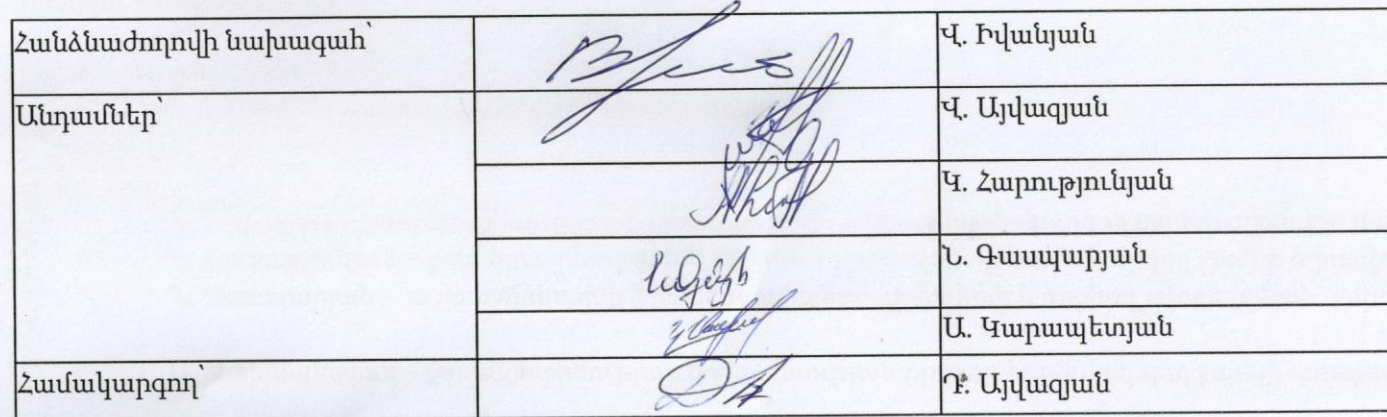 Հանձնաժողովի նախագահ՝ Վ. Իվանյան
Անդամներ՝ Վ. Այվազյան
Կ. Հարությունյան
Ն. Գասպարյան
Ա. Կարապետյան
Համակարգող Դ. Այվազյան